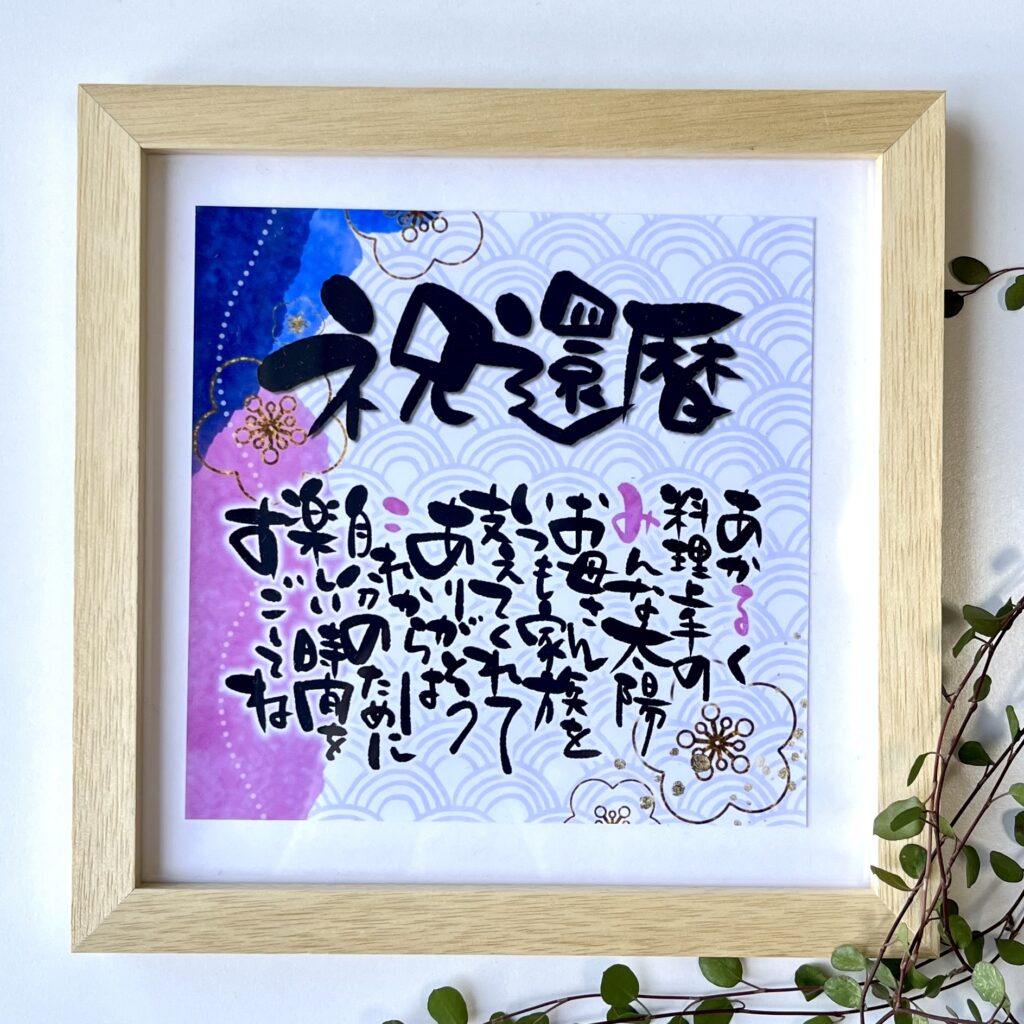 祝還暦
あかるく
料理上手の
みんな太陽
お母さん
いつも家族を
支えてくれて
ありがとう
これからは
自分のために
楽しい時間を
すごしてね